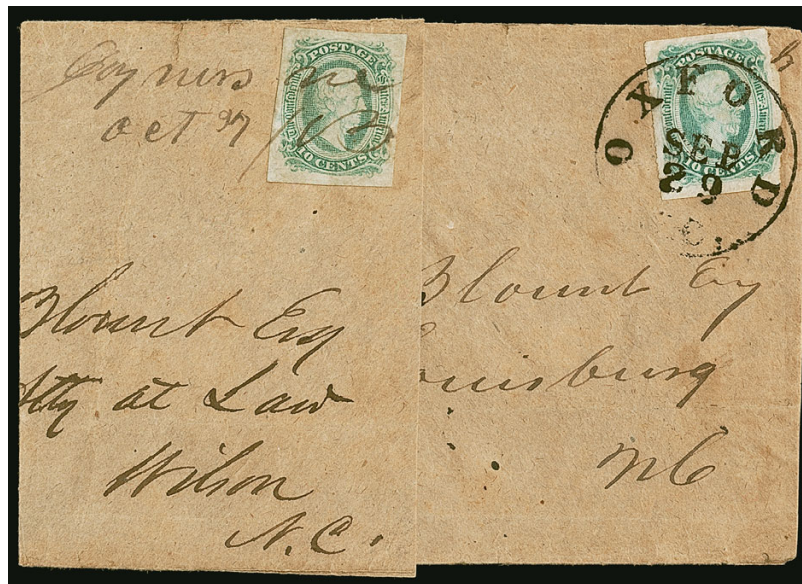 oct 27
POSTAGE
The Confederate States of America
10 CENTS
Blount Esq
Atty at Law
Wilson
N.C.
POSTAGE
10 CENTS
OXFORD
SEP
29
Blount Esq
Louisburg
NC